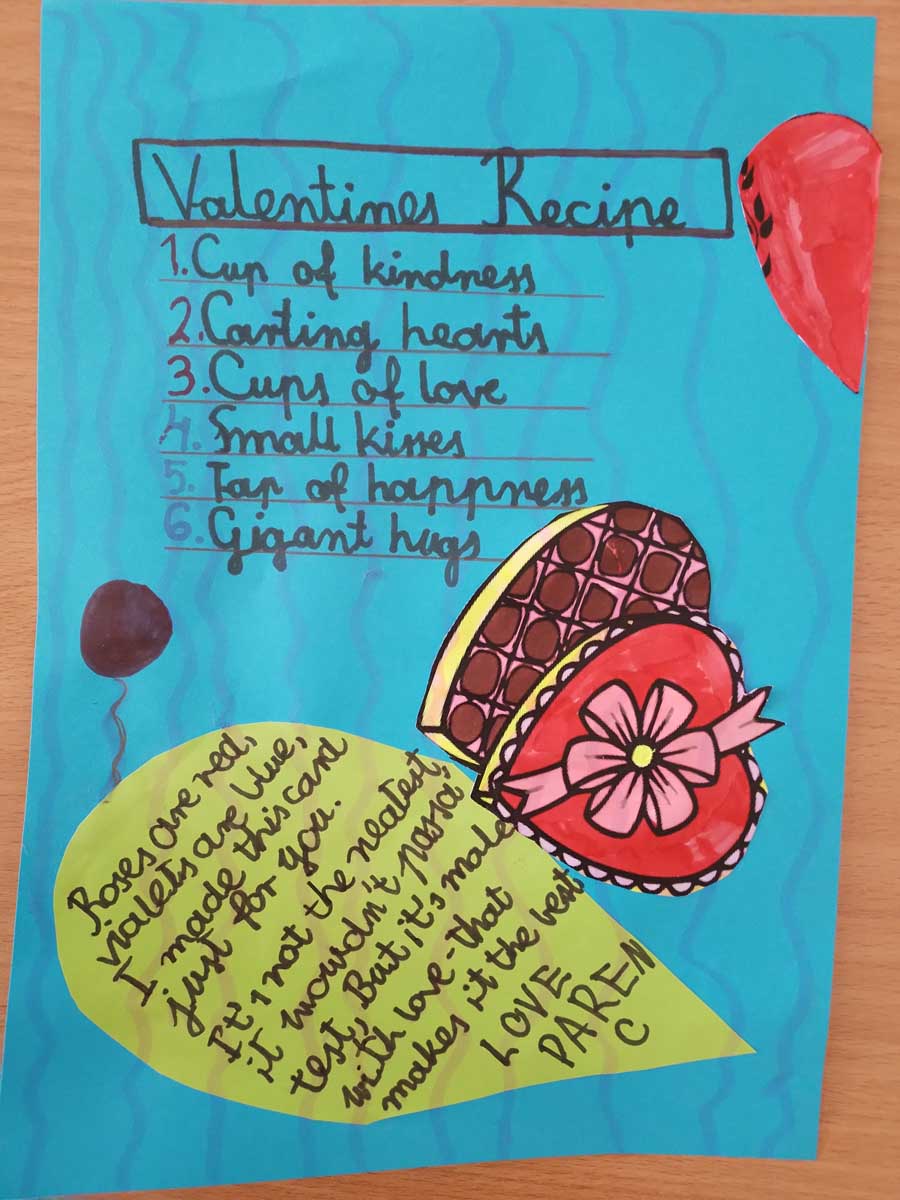 Valentines Recipe
1. Cup of kindness
2. Carting hearts
3. Cups of love
4. Small kisses
5. Tap of happness
6. Gigant hugs
Roses are red,
violets are blue,
I made this card
just for you.
It's not the neatest,
it wouldn't pass a
test, But it's made
with love - that
makes it the best
LOVE
PAREN
C